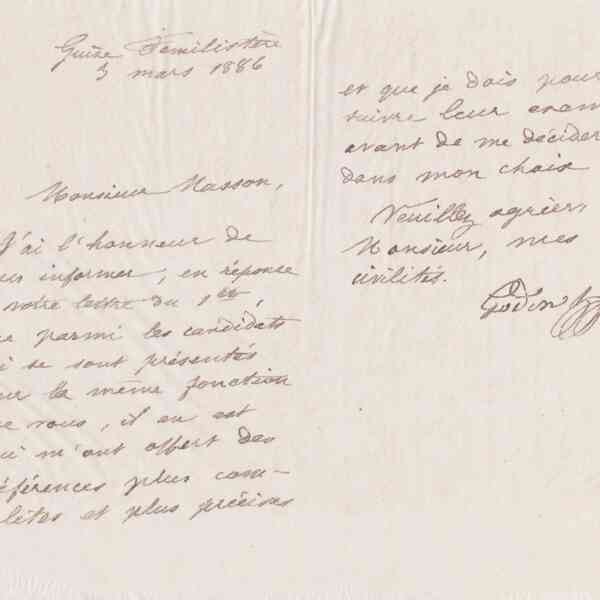 Guise Familistère
3 mars 1886
Monsieur Masson,
J'ai l'honneur de
ous informer, en réponse
votre lettre du 1er,
e parmi les candidats
i se sont présentés
ur la même fonction
e vous, il en est
ui m'ont offert des
éférences plus com-
lètes et plus précises
et que je dois pour
suivre leur exam
avant de me décider
dans mon choix
Veuillez agréer,
Monsieur, mes
civilités.
Godin